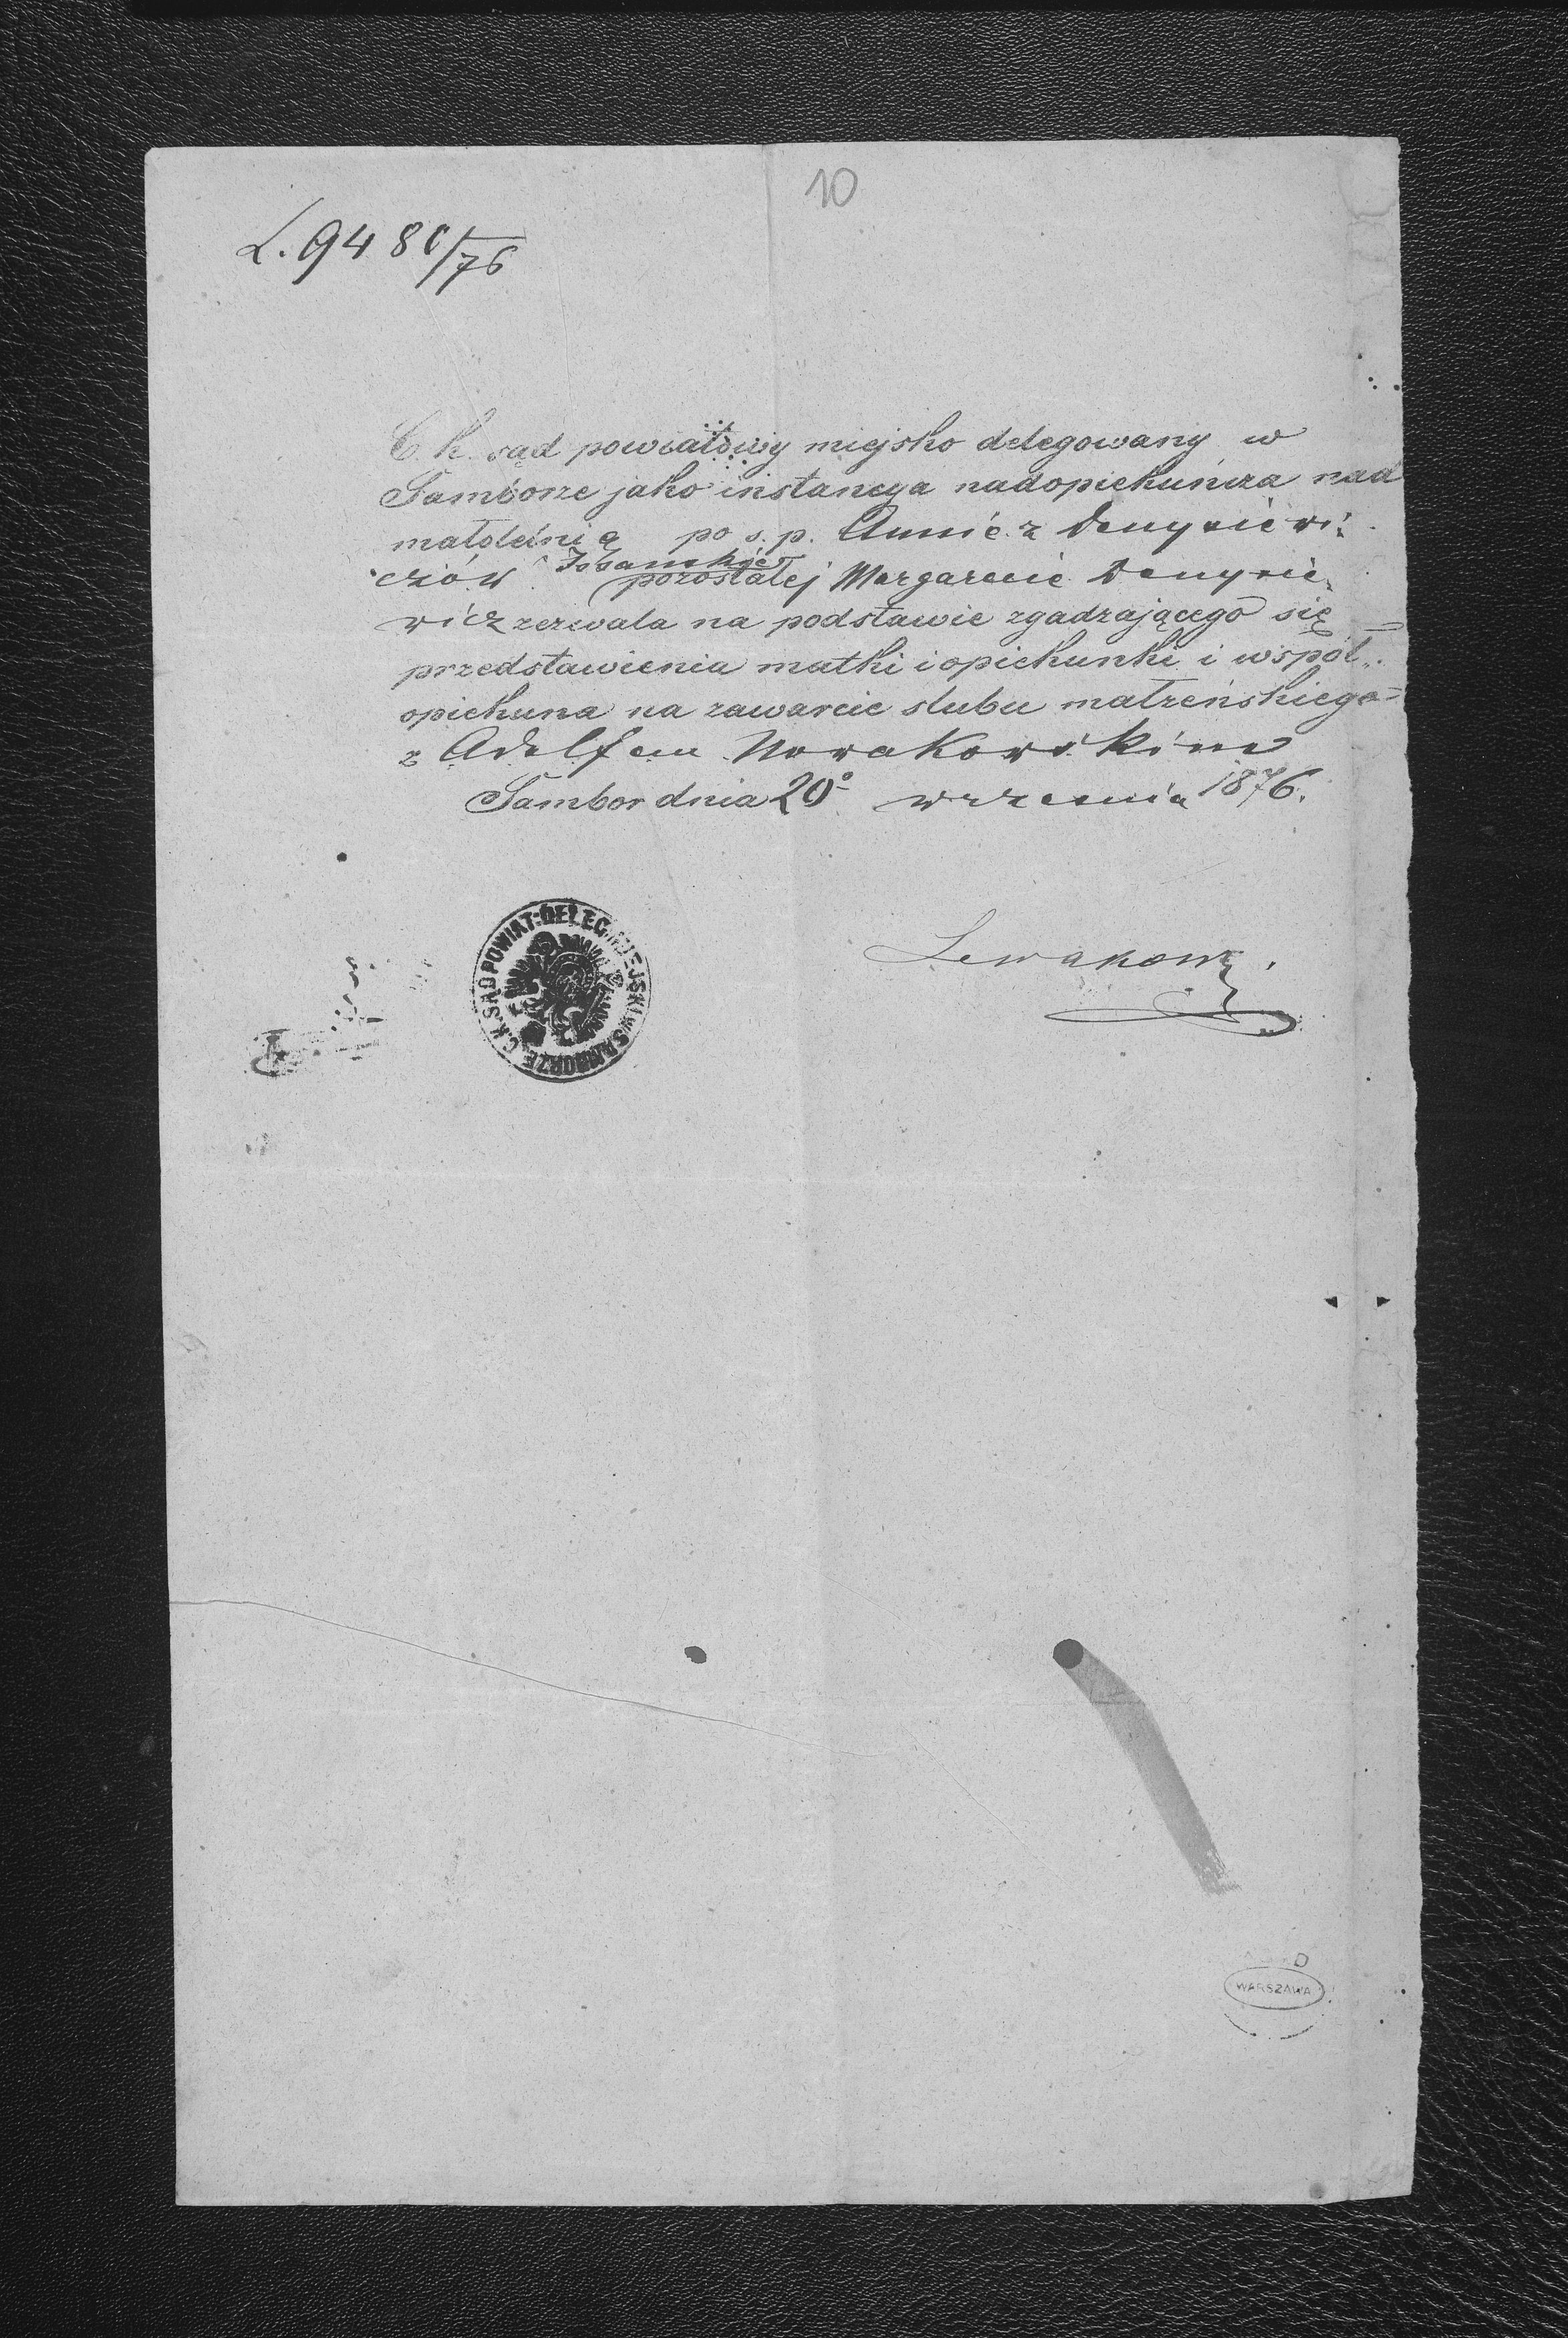 10
L. 9480/76
C. k. sąd powiatowy miejsko delegowany w
Samborze jako instancya nadopiekuńcza nad
małoletnią po s. p. Annie z Denysiewi-
czów
pozostałej Margarecie Denysie-
wicz zezwala na podstawie zgadzającego się
przedstawienia matki i opiekunki i współ-
opiekuna na zawarcie slubu małżeńskiego
z Adolfem Nowakowskim
Sambor dnia 20° wrzesnia 1876.
C.K. SĄD POWIAT. DELEG. MIEJSKI W SAMBORZE
WARSZAWA